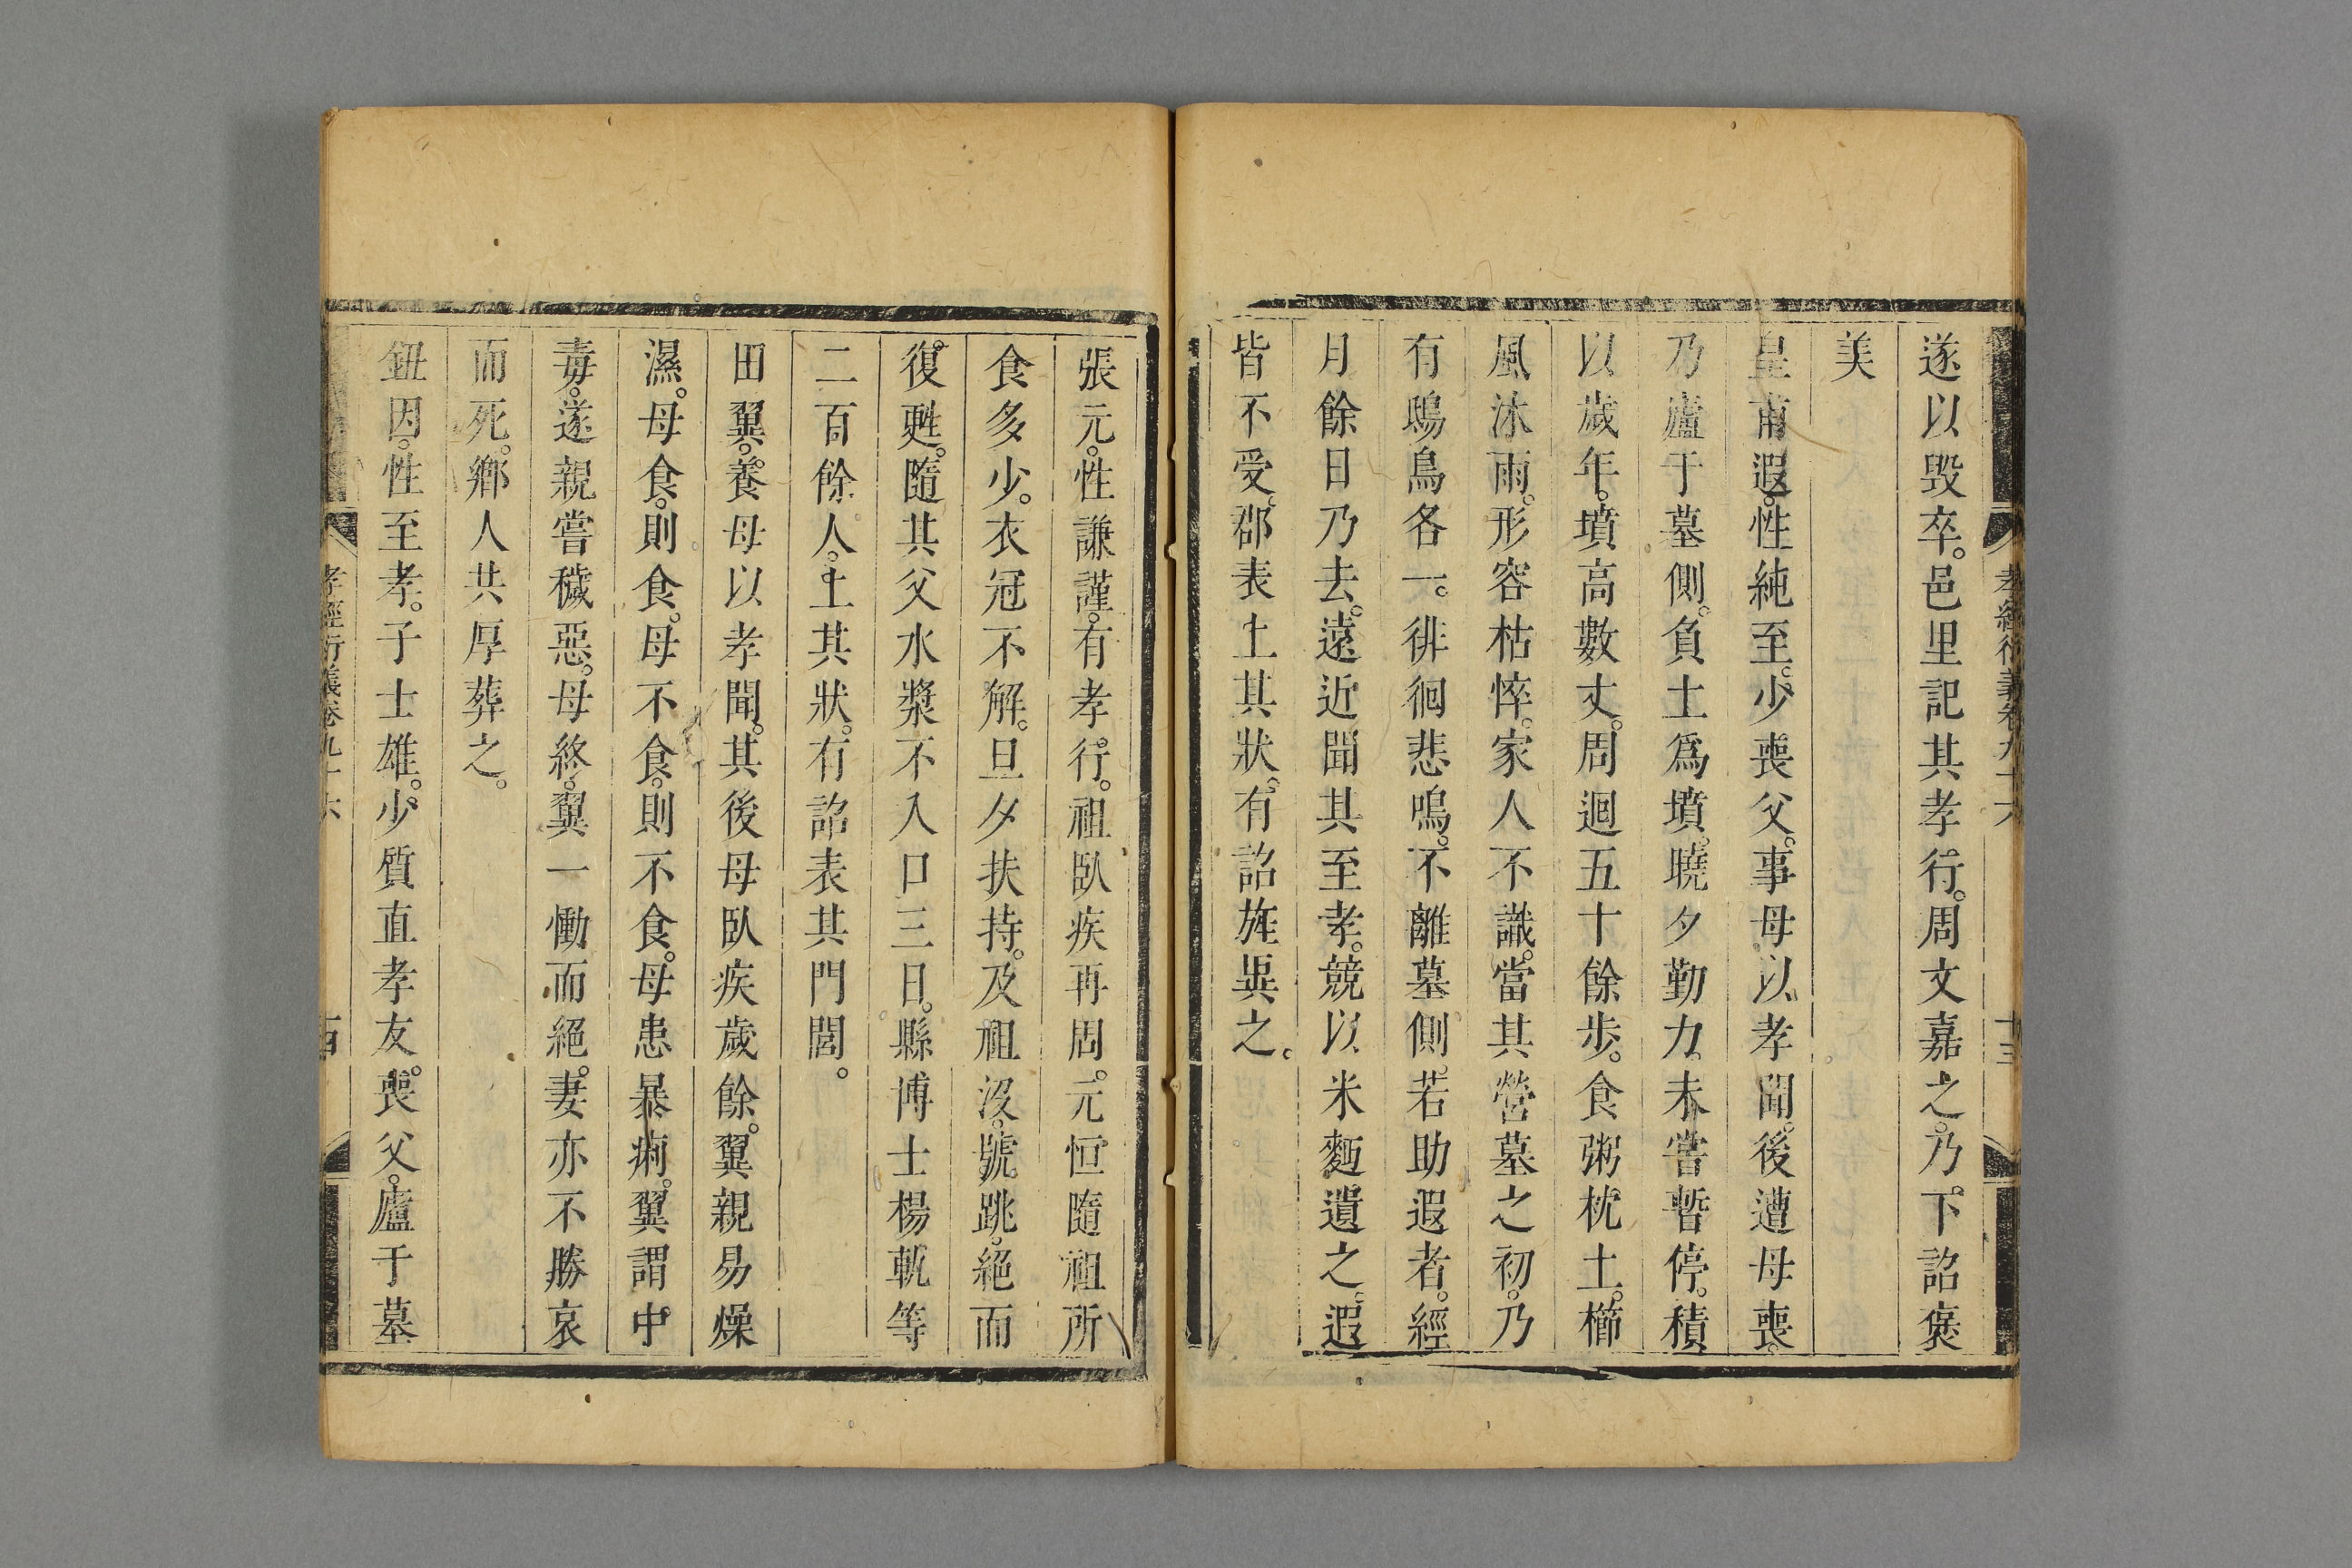 孝經衍義卷九十六
十三
遂以毀卒。邑里記其孝行。周文嘉之。乃下詔褒
美
皇甫遐。性純至。少喪父。事母以孝聞。後遭母喪。
乃廬于墓側。負土爲墳。曉夕勤力。未嘗暫停。積
以歲年。墳高數丈。周迴五十餘步。食粥枕土。櫛
風沐雨。形容枯悴。家人不識。當其營墓之初。乃
有鴟鳥各一。徘徊悲鳴。不離墓側。若助遐者。經
月餘日乃去。遠近聞其至孝。競以米麪遺之。遐
皆不受。郡表上其狀。有詔旌異之。
張元。性謙謹。有孝行。祖臥疾再周。元恒隨祖所
食多少。衣冠不解。旦夕扶持。及祖沒。號踴。絕而
復甦。隨其父水漿不入口三日。縣博士楊軌等
二百餘人。上其狀。有詔表其門閭。
田翼。養母以孝聞。其後母臥疾歲餘。翼親易燥
濕。母食。則食。母不食。則不食。母患暴痢。翼謂中
毒。遂親嘗穢惡。母終。翼一慟而絕。妻亦不勝哀
而死。鄉人共厚葬之。
鈕因。性至孝。子士雄。少質直孝友。喪父。廬于墓
孝經衍義卷九十六